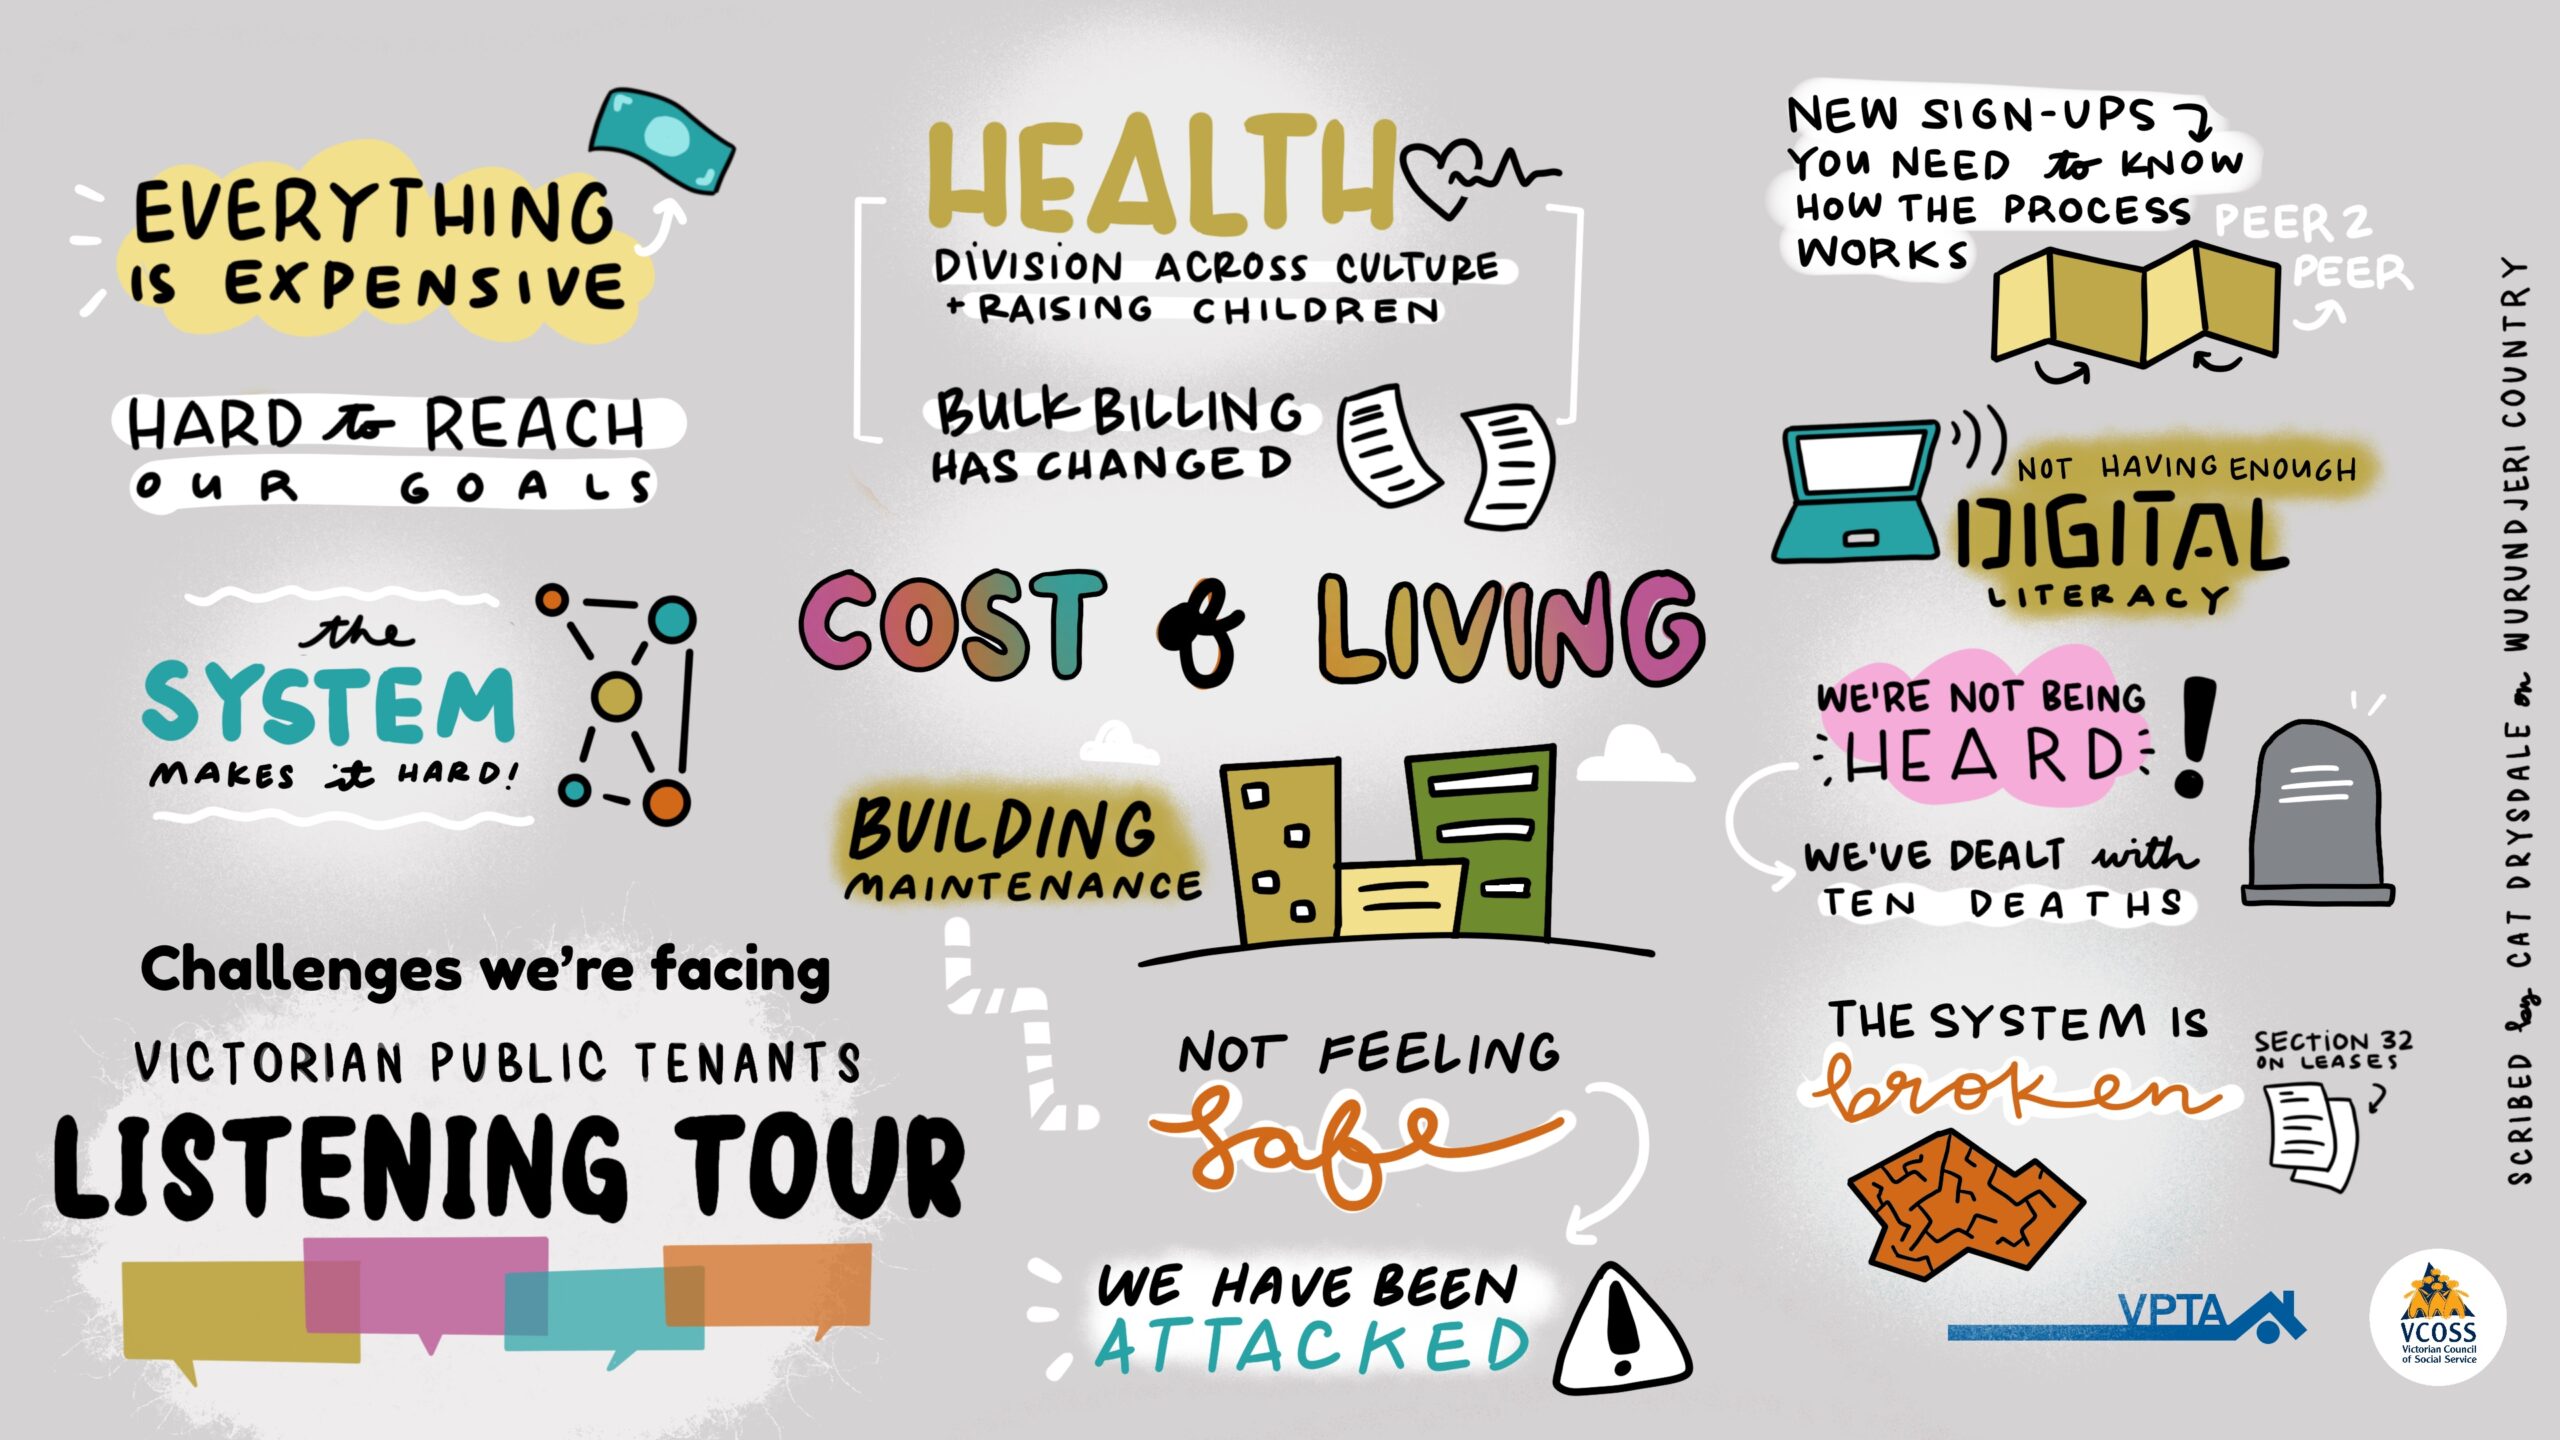 EVERYTHING
IS EXPENSIVE
HARD to REACH
OUR GOALS
the
SYSTEM
MAKES it HARD!
Challenges we're facing
VICTORIAN PUBLIC TENANTS
LISTENING TOUR
HEALTH
DIVISION ACROSS CULTURE
+ RAISING CHILDREN
BULK BILLING
HAS CHANGED
COST & LIVING
BUILDING
MAINTENANCE
NOT FEELING
safe
WE HAVE BEEN
ATTACKED
NEW SIGN-UPS
YOU NEED to KNOW
HOW THE PROCESS
WORKS
PEER 2
PEER
NOT HAVING ENOUGH
DIGITAL
LITERACY
WE'RE NOT BEING
HEARD!
WE'VE DEALT with
TEN DEATHS
THE SYSTEM IS
broken
SECTION 32
ON LEASES
VPTA
VCOSS
Victorian Council
of Social Service
SCRIBED by CAT DRYSDALE on WURUNDJERI COUNTRY